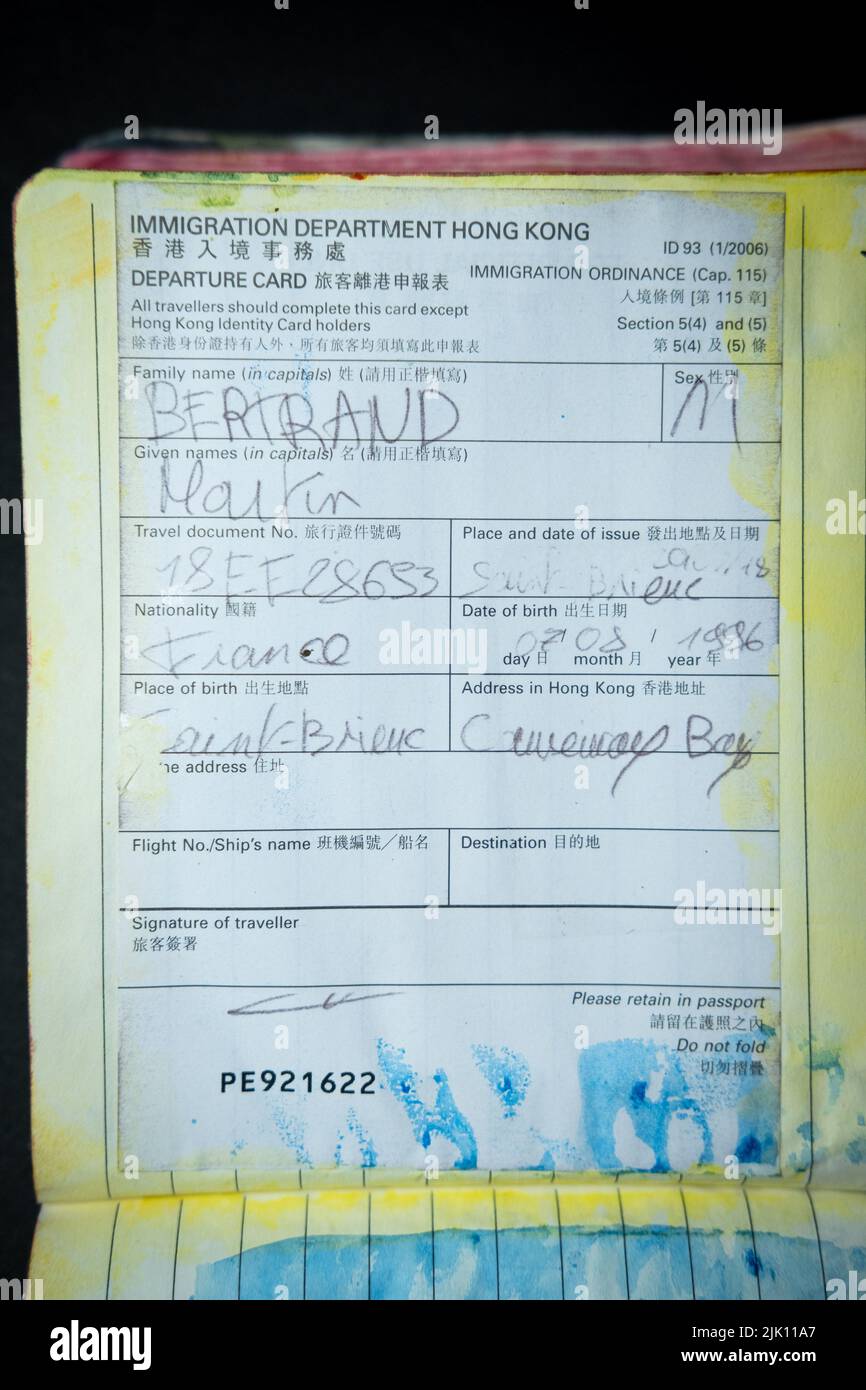 IMMIGRATION DEPARTMENT HONG KONG
香港入境事務處
ID 93 (1/2006)
DEPARTURE CARD 旅客離港申報表
IMMIGRATION ORDINANCE (Cap. 115)
入境條例 [第 115 章]
All travellers should complete this card except
Hong Kong Identity Card holders
Section 5(4) and (5)
除香港身份證持有人外，所有旅客均須填寫此申報表
第 5(4) 及 (5) 條
Family name (in capitals) 姓 (請用正楷填寫)
Sex 性別
BERTRAND
M
Given names (in capitals) 名 (請用正楷填寫)
Martin
Travel document No. 旅行證件號碼
Place and date of issue 發出地點及日期
18EF28653
Saint-Brieuc
Nationality 國籍
Date of birth 出生日期
France
07/08/1986
day 日 month 月 year 年
Place of birth 出生地點
Address in Hong Kong 香港地址
Saint-Brieuc
Causeway Bay
address 住址
Flight No./Ship's name 班機編號／船名
Destination 目的地
Signature of traveller
旅客簽署
Please retain in passport
請留在護照之內
Do not fold
切勿摺疊
PE921622
alamy
alamy
Image ID: 2JK11A7
www.alamy.com